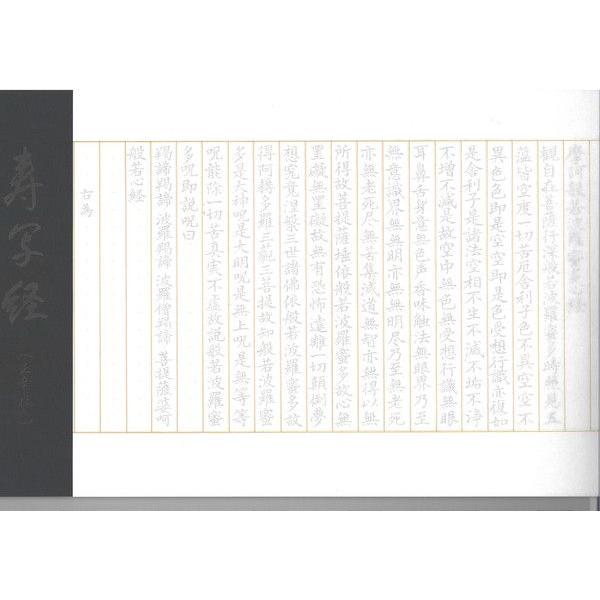 摩訶般若波羅蜜多心経
観自在菩薩行深般若波羅蜜多時照見五
蘊皆空度一切苦厄舎利子色不異空空不
異色色即是空空即是色受想行識亦復如
是舎利子是諸法空相不生不滅不垢不浄
不増不減是故空中無色無受想行識無眼
耳鼻舌身意無色声香味触法無眼界乃至
無意識界無無明亦無無明尽乃至無老死
亦無老死尽無苦集滅道無智亦無得以無
所得故菩提薩埵依般若波羅蜜多故心無
罣礙無罣礙故無有恐怖遠離一切顛倒夢
想究竟涅槃三世諸佛依般若波羅蜜多故
得阿耨多羅三藐三菩提故知般若波羅蜜
多是大神呪是大明呪是無上呪是無等等
呪能除一切苦真実不虚故説般若波羅蜜
多呪即説呪曰
羯諦羯諦 波羅羯諦 波羅僧羯諦 菩提薩婆呵
般若心経
右為
寿写経